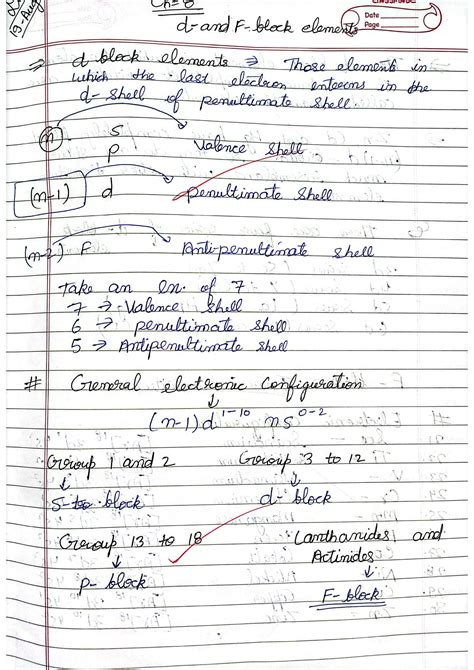 19-Aug
Ch = 8
Date
Page
d- and F- block elements
⇒ d block elements ⇒ Those elements in
which the last electron enterns in the
d- shell of penultimate shell.
(n) S
P Valence shell
(n-1) d penultimate shell
(n-2) F Anti-penultimate shell
Take an en. of 7
7 → Valence shell
6 → penultimate shell
5 → Antipenultimate shell
# General electronic Configuration
↓
(n-1)d¹⁻¹⁰ ns⁰⁻²
Group 1 and 2 Group 3 to 12
↓ ↓
S- block d- block
Group 13 to 18 Lanthanides and
↓ Actinides
p- block ↓
F- block